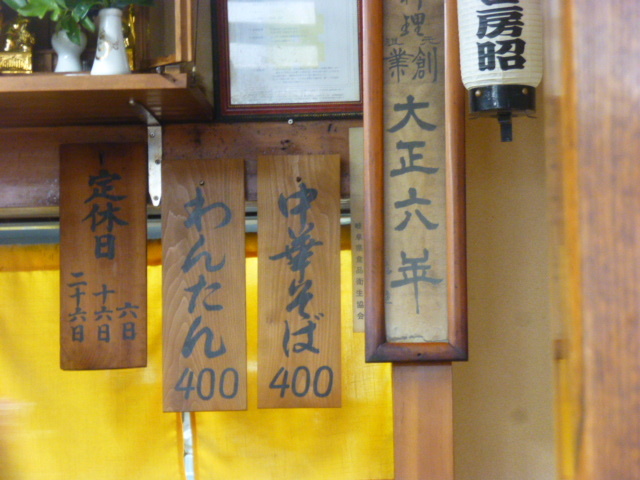 定休日
六日
十六日
二十六日
わんたん
400
中華そば
400
料理
創業
大正六年
房昭